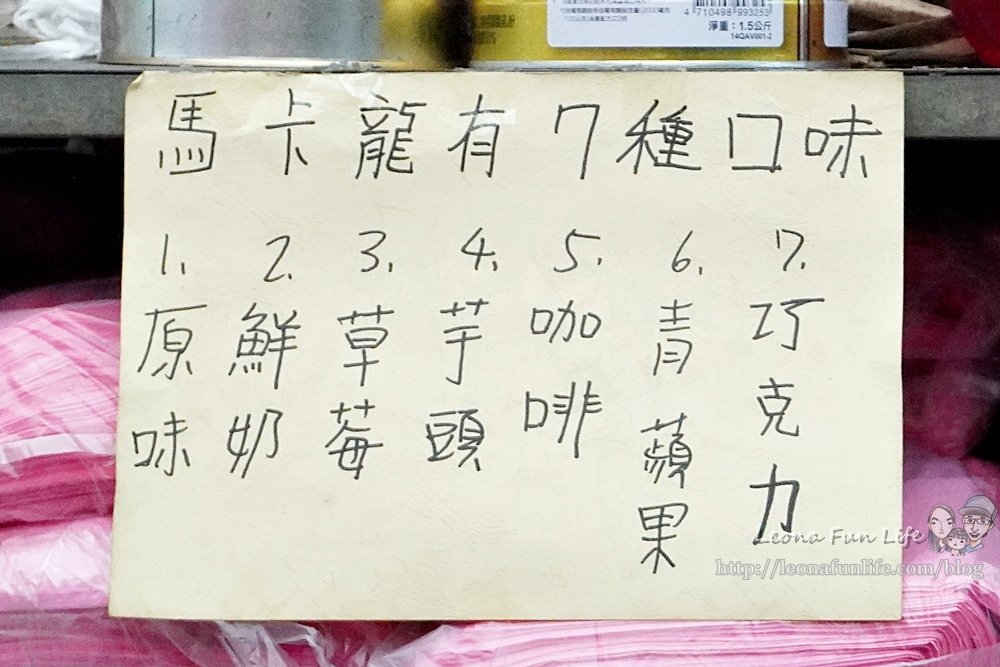 4710498993253
淨重：1.5公斤
14QAV001-2
馬卡龍有7種口味
1.原味
2.鮮奶
3.草莓
4.芋頭
5.咖啡
6.青蘋果
7.巧克力
Leona Fun Life
http://leonafunlife.com/blog